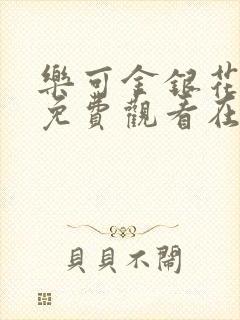 樂可金銀花
免費觀看在
貝貝不鬧